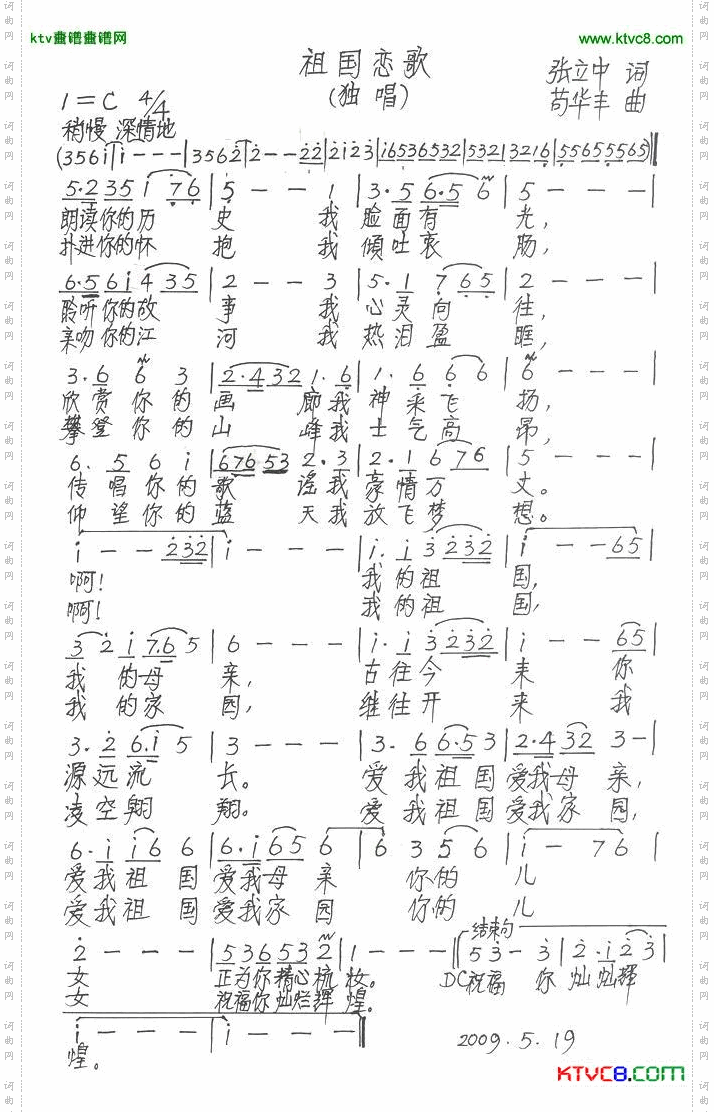 ktv畫谱畫谱网
www.ktvc8.com
祖国恋歌
(独唱)
张立中 词
苟华丰 曲
1=C 4/4
稍慢 深情地
(356i|i---|3562|2---22|2i23|i6536532|532|32i6|55655565)‖
5·2 35 i 76|5--1|3·5 6·5 6|5---|
朗读你的历 史 我 脸面有 光,
扑进你的怀 抱 我 倾吐衷 肠,
6·5 6i 4 35|2--3|5·1 7 65|2---|
聆听你的故 事 我 心灵向 往,
亲吻你的江 河 我 热泪盈 眶,
3·6 6 3|2·432 1·6|1·6 6 6|6---|
欣赏你的画 廊我神采飞 扬,
攀登你的山 峰我士气高 昂,
6·5 6 i|676 53 2·3|2·1 6 76|5---|
传唱你的歌 谣我豪情万 丈。
仰望你的蓝 天我放飞梦 想。
i--232|i---|i·i 3 232|i--65|
啊! 我的祖 国,
啊! 我的祖 国,
3 2 i 7·6 5|6---|i·i 3 232|i--65|
我 的母 亲, 古往今 来 你
我 的家 园, 继往开 来 我
3·2 6·i 5|3---|3·6 6·5 3|2·4 32 3-|
源远流 长。 爱我祖国爱我母 亲,
凌空翔 翔。 爱我祖国爱我家 园,
6·i i6 6|6·i 65 6|6 3 5 6|i-76|
爱我祖 国爱我母 亲 你的 儿
爱我祖 国爱我家 园 你的 儿
结束句
2---|53653 2|1---‖53-3|2·i 2 3|
女 正为你精心梳 妆。 DC祝福 你 灿灿辉
女 祝福你灿烂辉 煌。
i---|i---‖
煌。
2009.5.19
KTVC8.COM
词曲网